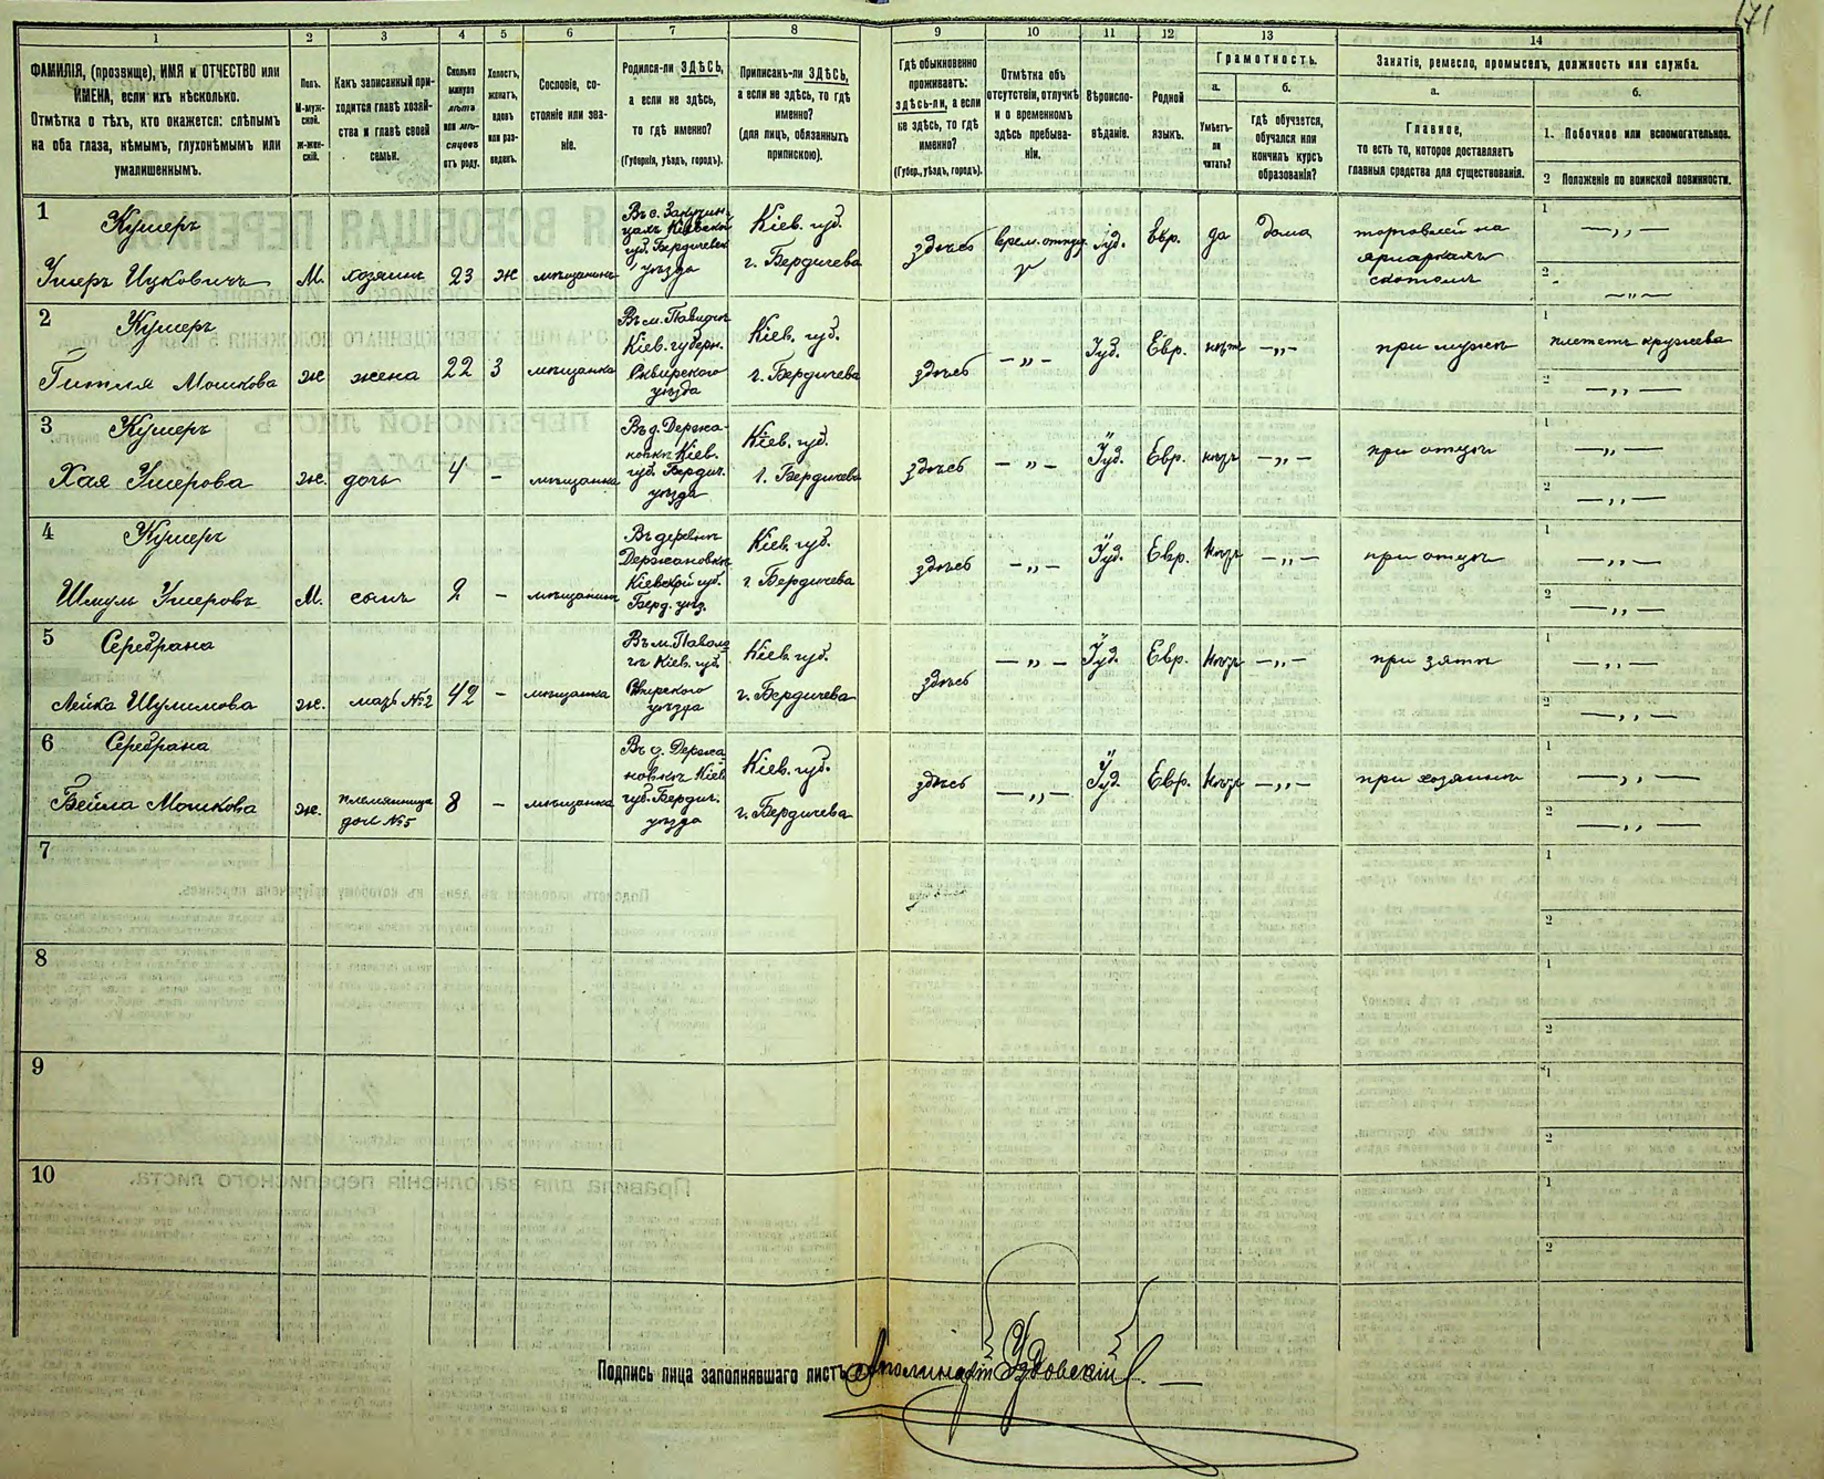 171
1 2 3 4 5 6 7 8 9 10 11 12 13 14
ФАМИЛІЯ, (прозвище), ИМЯ и ОТЧЕСТВО или
ИМЕНА, если ихъ нѣсколько.
Отмѣтка о тѣхъ, кто окажется: слѣпымъ
на оба глаза, нѣмымъ, глухонѣмымъ или
умалишеннымъ.
Полъ.
М-муж-
ской.
ж-жен-
скій.
Какъ записанный при-
ходится главѣ хозяй-
ства и главѣ своей
семьи.
Сколько
минуло
лѣтъ
или мѣ-
сяцевъ
отъ роду.
Холостъ,
женатъ,
вдовъ
или раз-
веденъ.
Сословіе, со-
стояніе или зва-
ніе.
Родился-ли ЗДѢСЬ,
а если не здѣсь,
то гдѣ именно?
(Губернія, уѣздъ, городъ).
Приписанъ-ли ЗДѢСЬ,
а если не здѣсь, то гдѣ
именно?
(для лицъ, обязанныхъ
припискою).
Гдѣ обыкновенно
проживаетъ:
здѣсь-ли, а если
не здѣсь, то гдѣ
именно?
(Губер., уѣздъ, городъ).
Отмѣтка объ
отсутствіи, отлучкѣ
и о временномъ
здѣсь пребыва-
ніи.
Вѣроиспо-
вѣданіе.
Родной
языкъ.
Грамотность.
а.
Умѣетъ-
ли
читать?
б.
гдѣ обучается,
обучался или
кончилъ курсъ
образованія?
Занятіе, ремесло, промыселъ, должность или служба.
а.
Главное,
то есть то, которое доставляетъ
главныя средства для существованія.
б.
1. Побочное или вспомогательное.
2 Положеніе по воинской повинности.
1
Кушеръ
Ушеръ Ицковичъ
М.
хозяинъ
23
ж
мѣщанинъ
Кіевской
губ. Бердичевск
уѣзда
Кіев. губ.
г. Бердичева
здѣсь
врем. отлуч.
Іуд.
Евр.
да
дома
торговлей на
ярмаркахъ
скотомъ
1 — „ —
2 — „ —
2
Кушеръ
Гитля Мошкова
ж
жена
22
З
мѣщанка
Кіев. губерн.
Сквирского
уѣзда
Кіев. губ.
г. Бердичева
здѣсь
— „ —
Іуд.
Евр.
нѣт
— „ —
при мужѣ
1 плететъ кружева
2 — „ —
3
Кушеръ
Хая Ушерова
ж.
дочь
4
–
мѣщанка
Въ д. Держа-
новкѣ Кіев.
губ. Бердич.
уѣзда
Кіев. губ.
г. Бердичева
здѣсь
— „ —
Іуд.
Евр.
нѣт
— „ —
при отцѣ
1 — „ —
2 — „ —
4
Кушеръ
Шмуль Ушеровъ
М.
сынъ
2
–
мѣщанинъ
Въ деревнѣ
Держановкѣ
Кіевской губ.
Берд. уѣз.
Кіев. губ.
г Бердичева
здѣсь
— „ —
Іуд.
Евр.
нѣт
— „ —
при отцѣ
1 — „ —
2 — „ —
5
Серебрана
Лейка Шулимова
ж.
мать №2
42
–
мѣщанка
Въ м. Паволо
чѣ Кіев. губ.
Сквирского
уѣзда
Кіев. губ.
г. Бердичева
здѣсь
— „ —
Іуд.
Евр.
нѣт
— „ —
при зятѣ
1 — „ —
2 — „ —
6
Серебрана
Бейла Мошкова
ж.
племянница
дочь №5
8
–
мѣщанка
Въ д. Держа
новкѣ Кіев
губ. Бердич.
уѣзда
Кіев. губ.
г. Бердичева
здѣсь
— „ —
Іуд.
Евр.
нѣт
— „ —
при хозяинѣ
1 — „ —
2 — „ —
7
1
2
8
1
2
9
1
2
10
1
2
Подпись лица заполнявшаго листъ